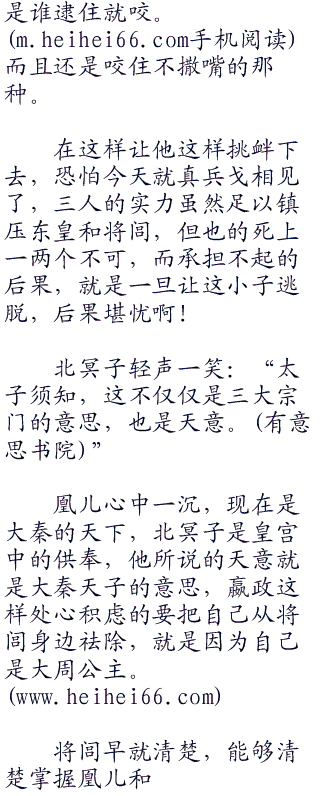 是谁逮住就咬。
(m.heihei66.com手机阅读)
而且还是咬住不撒嘴的那
种。
在这样让他这样挑衅下
去，恐怕今天就真兵戈相见
了，三人的实力虽然足以镇
压东皇和将闾，但也的死上
一两个不可，而承担不起的
后果，就是一旦让这小子逃
脱，后果堪忧啊！
北冥子轻声一笑：“太
子须知，这不仅仅是三大宗
门的意思，也是天意。(有意
思书院)”
凰儿心中一沉，现在是
大秦的天下，北冥子是皇宫
中的供奉，他所说的天意就
是大秦天子的意思，嬴政这
样处心积虑的要把自己从将
闾身边祛除，就是因为自己
是大周公主。
(www.heihei66.com)
将闾早就清楚，能够清
楚掌握凰儿和